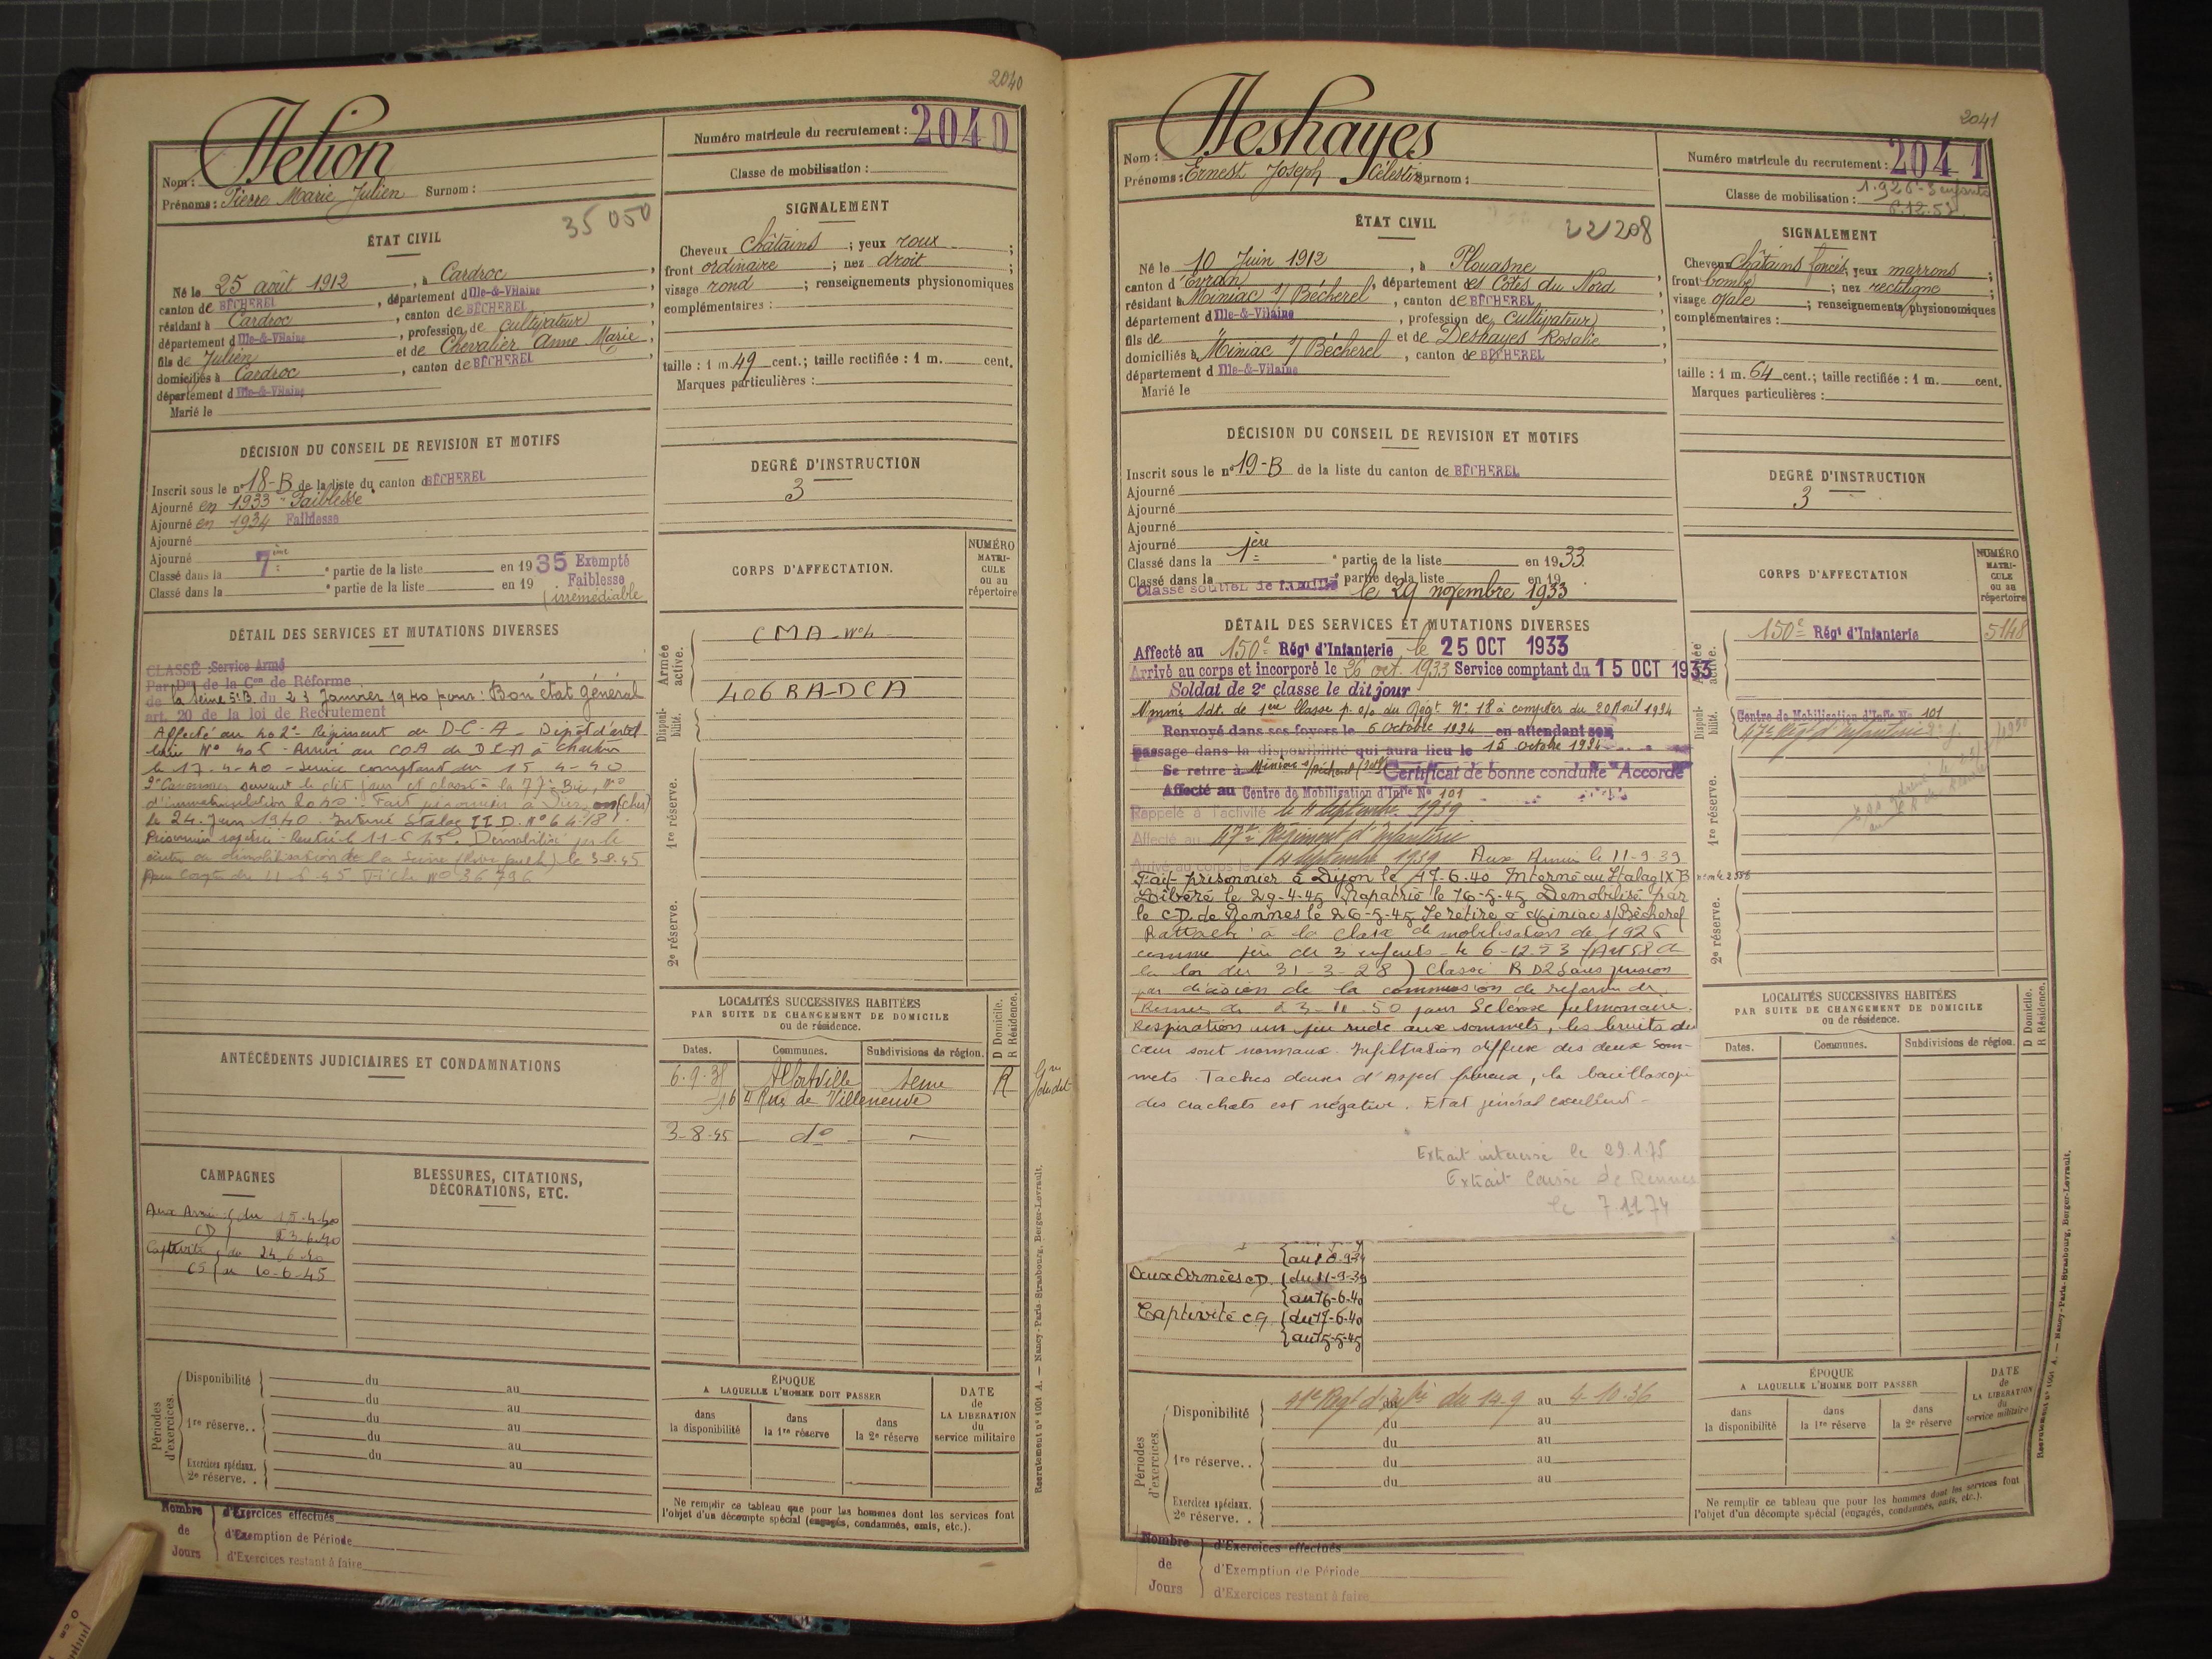 2040
Nom : Helion
Prénoms : Pierre Marie Julien Surnom :
Numéro matricule du recrutement : 2040
Classe de mobilisation :
35 050
ÉTAT CIVIL
Né le 25 août 1912, à Cardroc,
canton de BÉCHEREL, département d'Ille-&-Vilaine
résidant à Cardroc, canton de BÉCHEREL,
département d'Ille-&-Vilaine, profession de cultivateur,
fils de Julien et de Chevalier Anne Marie,
domiciliés à Cardroc, canton de BÉCHEREL,
département d Ille-&-Vilaine
Marié le
SIGNALEMENT
Cheveux châtains ; yeux roux ;
front ordinaire ; nez droit ;
visage rond ; renseignements physionomiques
complémentaires :
taille : 1 m. 49 cent.; taille rectifiée : 1 m. cent.
Marques particulières :
DÉCISION DU CONSEIL DE REVISION ET MOTIFS
Inscrit sous le n° 18-B de la liste du canton d BÉCHEREL
Ajourné en 1933 "Faiblesse"
Ajourné en 1934 Faiblesse
Ajourné
Ajourné
Classé dans la 7ème partie de la liste en 1935 Exempté
Classé dans la partie de la liste en 19 Faiblesse
irrémédiable
DEGRÉ D'INSTRUCTION
3
DÉTAIL DES SERVICES ET MUTATIONS DIVERSES
CLASSÉ : Service Armé
Par Don de la Con de Réforme
de la Seine 5eB du 23 Janvier 1940 pour : Bon état général
art. 20 de la loi de Recrutement
Affecté au 402e Régiment de D-C-A - Dépôt d'artil
lerie N° 405 - Arrivé au COA de DCA à
le 17-4-40 - Service comptant du 15-4-40
2e Canonnier suivant le dit jour et classé à la 77e Bie, N°
d'immatriculation 2040. Fait prisonnier à (cher)
le 24 Juin 1940. Interné Stalag II D. N° 6418
Prisonnier rapatrié. Démobilisé par le
centre de démobilisation de la Seine le 3-8-45
Fiche N° 36796
CORPS D'AFFECTATION.
NUMÉRO MATRICULE ou au répertoire
Armée active.
CMA
406 RA-DCA
Disponibilité.
1re réserve.
2e réserve.
ANTÉCÉDENTS JUDICIAIRES ET CONDAMNATIONS
LOCALITÉS SUCCESSIVES HABITÉES
PAR SUITE DE CHANGEMENT DE DOMICILE
ou de résidence.
D Domicile. R Résidence.
Dates. Communes. Subdivisions de région.
6-9-38 Alfortville Seine R
16 Rue de Villeneuve
3-8-45 do
CAMPAGNES
Aux Armées du 15-4-40
CD 23-6-40
Captivité du 24-6-40
CS au 10-6-45
BLESSURES, CITATIONS,
DÉCORATIONS, ETC.
Périodes d'exercices.
Disponibilité du au
du au
1re réserve.. du au
du au
Exercices spéciaux. 2e réserve. . du au
ÉPOQUE
A LAQUELLE L'HOMME DOIT PASSER
dans la disponibilité
dans la 1re réserve
dans la 2e réserve
DATE de LA LIBÉRATION du service militaire
Ne remplir ce tableau que pour les hommes dont les services font
l'objet d'un décompte spécial (engagés, condamnés, omis, etc.).
Nombre de Jours
d'Exercices effectués
d'Exemption de Période
d'Exercices restant à faire
Recrutement n° 1001 A. — Nancy-Paris-Strasbourg, Berger-Levrault.
2041
Nom : Deshayes
Prénoms : Ernest Joseph Célestin Surnom :
Numéro matricule du recrutement : 2041
Classe de mobilisation : 1.926 - 3 enfants
6.12.53
22208
ÉTAT CIVIL
Né le 10 Juin 1912, à Plouasne,
canton d'Evran, département des Côtes du Nord
résidant à Miniac s/ Bécherel, canton de BÉCHEREL
département d'Ille-&-Vilaine, profession de cultivateur,
fils de " et de Deshayes Rosalie
domiciliés à Miniac s/ Bécherel, canton de BÉCHEREL
département d Ille-&-Vilaine
Marié le
SIGNALEMENT
Cheveux châtains foncés; yeux marrons ;
front bombé ; nez rectiligne ;
visage ovale ; renseignements physionomiques
complémentaires :
taille : 1 m. 64 cent.; taille rectifiée : 1 m. cent.
Marques particulières :
DÉCISION DU CONSEIL DE REVISION ET MOTIFS
Inscrit sous le n° 19-B de la liste du canton de BÉCHEREL
Ajourné
Ajourné
Ajourné
Ajourné
Classé dans la 1ère partie de la liste en 1933
Classé dans la partie de la liste en 19
Classé soutien de famille le 29 novembre 1933
DEGRÉ D'INSTRUCTION
3
DÉTAIL DES SERVICES ET MUTATIONS DIVERSES
Affecté au 150e Régt d'Infanterie le 25 OCT 1933
Arrivé au corps et incorporé le 26 oct. 1933 Service comptant du 15 OCT 1933
Soldat de 2e classe le dit jour
Nommé Sdt. de 1ère Classe p. o/o du Régt. N° 18 à compter du 20 Avril 1934
Renvoyé dans ses foyers le 5 Octobre 1934 en attendant son
passage dans la disponibilité qui aura lieu le 15 Octobre 1934
Se retire à Miniac s/Bécherel Certificat de bonne conduite "Accordé"
Affecté au Centre de Mobilisation d'Infie N° 101
Rappelé à l'activité le 4 septembre 1939
Affecté au 47e Régiment d'Infanterie
Arrivé au corps le 4 septembre 1939 Aux Armées le 11-9-39
Fait prisonnier à Dijon le 17-6-40 Interné au Stalag IX B
Libéré le 29-4-45 Rapatrié le 16-5-45 Démobilisé par
le C-D. de Rennes le 26-5-45 Se retire à Miniac s/Bécherel
Rattaché à la classe de mobilisation de 1926
comme père de 3 enfants - le 6-12-53 (Art 58 de
la loi du 31-3-28) Classé R D2 Sans pension
par décision de la commission de réforme de
Rennes du 23-11-50 pour Sclérose pulmonaire.
Respiration un peu rude aux sommets, les bruits du
cœur sont normaux. Infiltration diffuse des deux som-
mets. Taches denses d'aspect fibreux, la bacilloscopie
des crachats est négative. Etat général excellent -
Extrait intéressé le 29.1.75
Extrait caisse de Rennes
le 7.11.74
CORPS D'AFFECTATION
NUMÉRO MATRICULE ou au répertoire
Armée active.
150e Régt d'Infanterie 5148
Disponibilité.
Centre de Mobilisation d'Infie N° 101
47e Régt d'Infanterie
1re réserve.
2e réserve.
au 10-9-39
Aux Armées CD. du 11-9-39
au 16-6-40
Captivité CS du 17-6-40
au 15-5-45
LOCALITÉS SUCCESSIVES HABITÉES
PAR SUITE DE CHANGEMENT DE DOMICILE
ou de résidence.
D Domicile. R Résidence.
Dates. Communes. Subdivisions de région.
Périodes d'exercices.
Disponibilité 41e Régt d'Infie du 14-9 au 4-10-36
du au
1re réserve.. du au
du au
du au
Exercices spéciaux. 2e réserve. .
ÉPOQUE
A LAQUELLE L'HOMME DOIT PASSER
dans la disponibilité
dans la 1re réserve
dans la 2e réserve
DATE de LA LIBÉRATION du service militaire
Ne remplir ce tableau que pour les hommes dont les services font
l'objet d'un décompte spécial (engagés, condamnés, omis, etc.).
Nombre de Jours
d'Exercices effectués
d'Exemption de Période
d'Exercices restant à faire
Recrutement n° 1001 A. — Nancy-Paris-Strasbourg, Berger-Levrault.